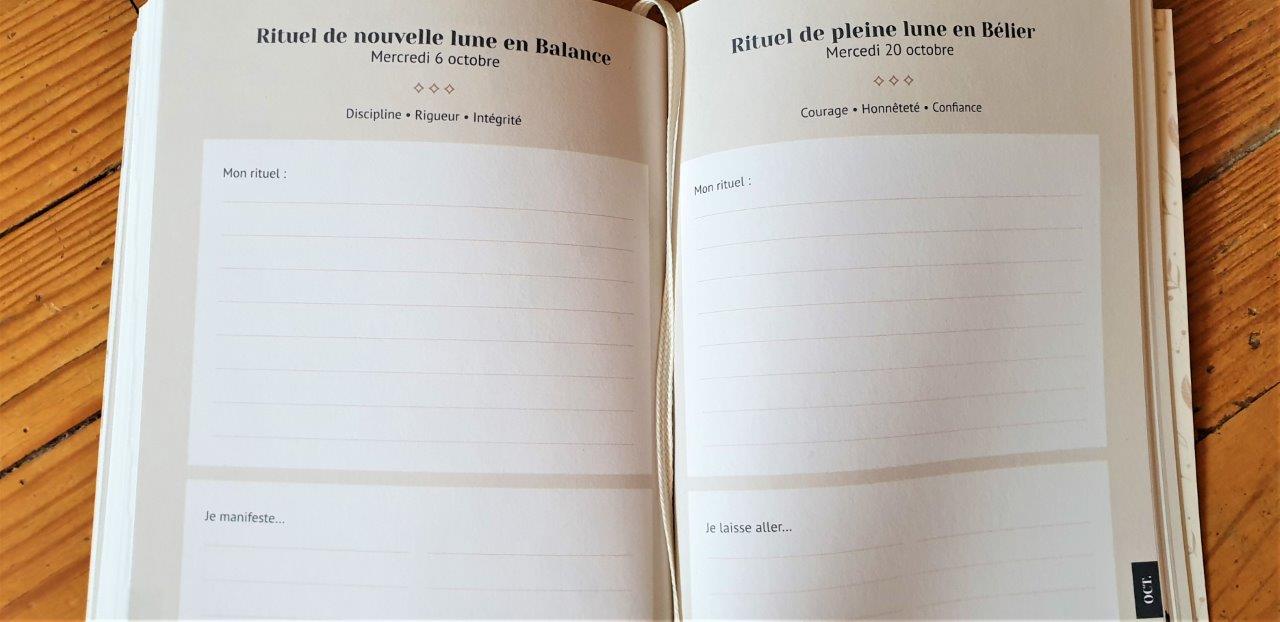 Rituel de nouvelle lune en Balance
Mercredi 6 octobre
Discipline • Rigueur • Intégrité
Mon rituel :
Je manifeste...
Rituel de pleine lune en Bélier
Mercredi 20 octobre
Courage • Honnêteté • Confiance
Mon rituel :
Je laisse aller...
OCT.